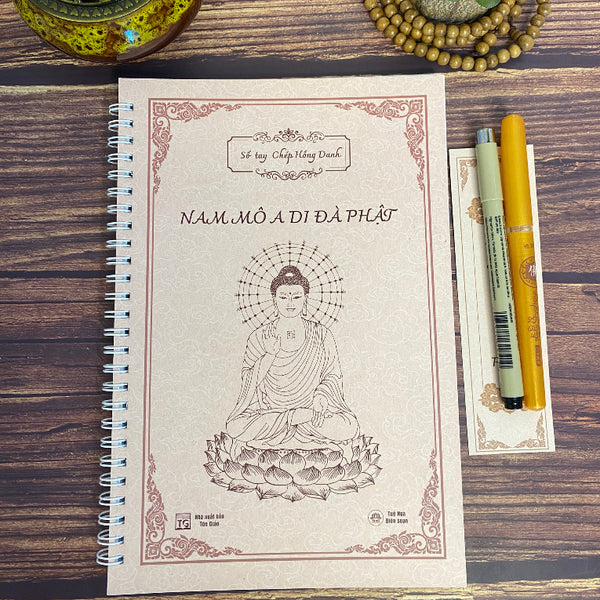 Sổ tay Chép Hồng Danh
NAM MÔ A DI ĐÀ PHẬT
Nhà xuất bản
Tôn Giáo
Tuệ Nga
Biên soạn